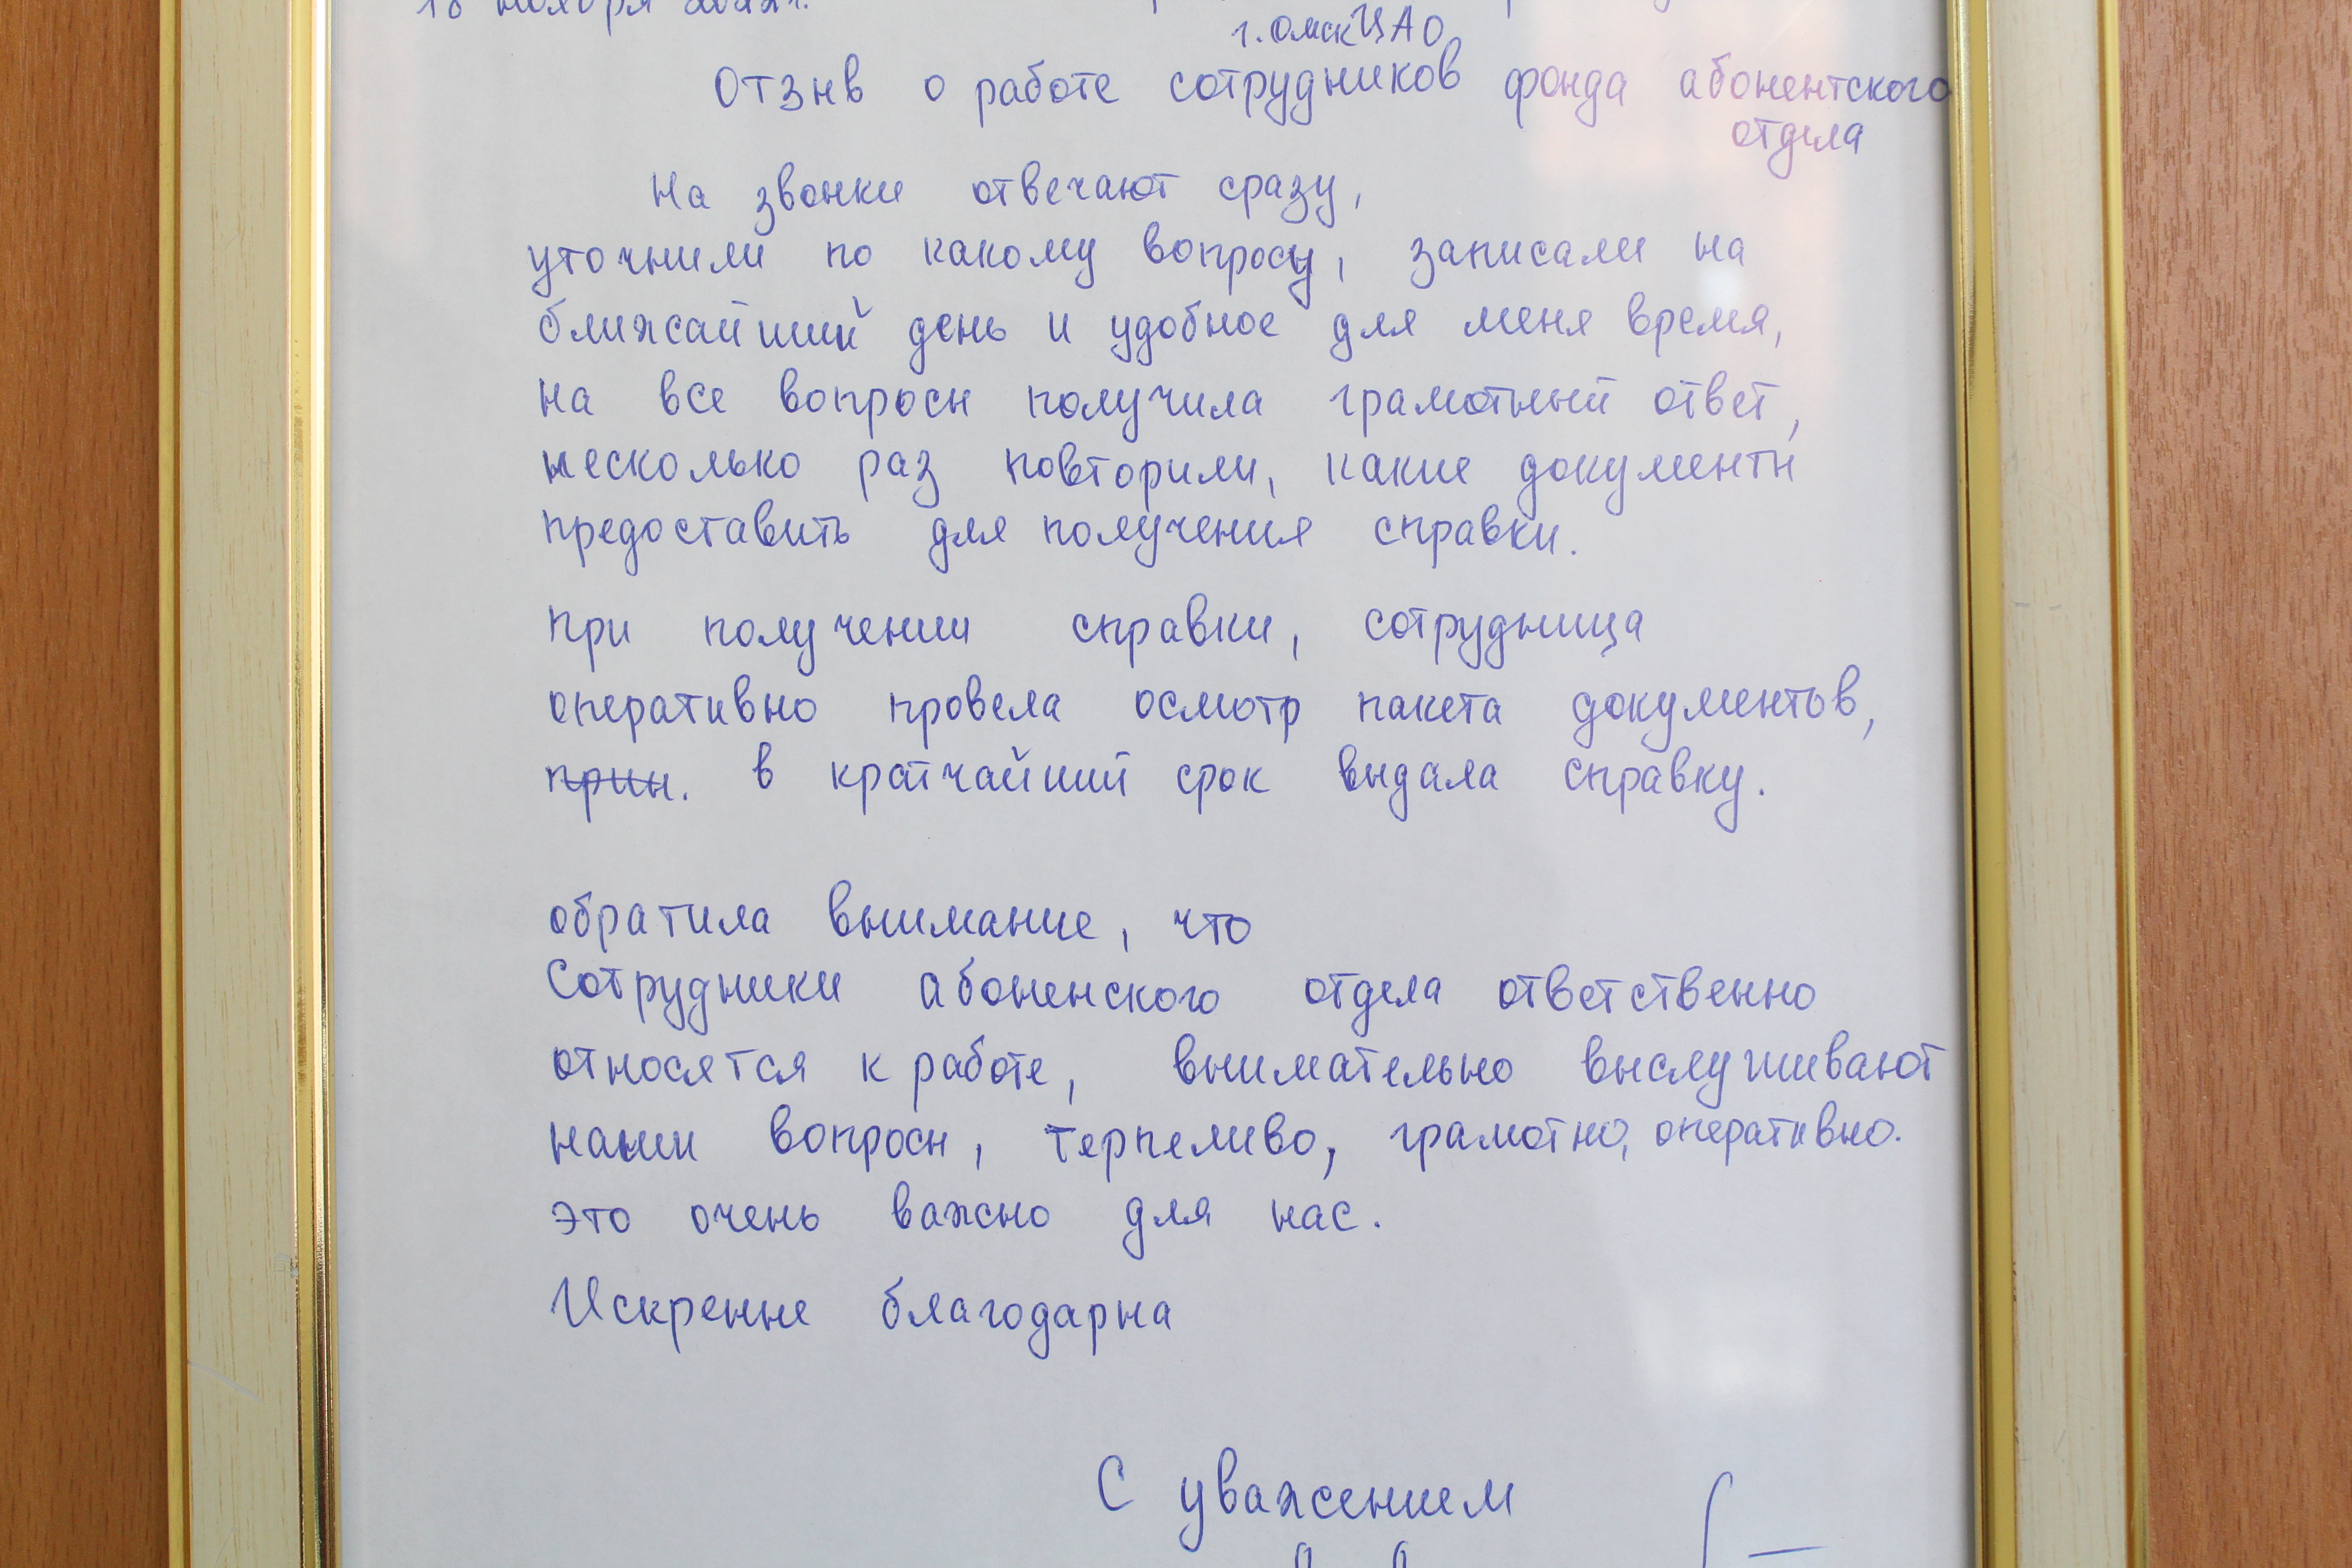 ноября
г. Омск ЦАО
Отзыв о работе сотрудников фонда абонентского
отдела
На звонки отвечают сразу,
уточнили по какому вопросу, записали на
ближайший день и удобное для меня время,
на все вопросы получила грамотный ответ,
несколько раз повторили, какие документы
предоставить для получения справки.
при получении справки, сотрудница
оперативно провела осмотр пакета документов,
прин. в кратчайший срок выдала справку.
обратила внимание, что
Сотрудники абоненского отдела ответственно
относятся к работе, внимательно выслушивают
наши вопросы, терпеливо, грамотно, оперативно.
это очень важно для нас.
Искренне благодарна
С уважением